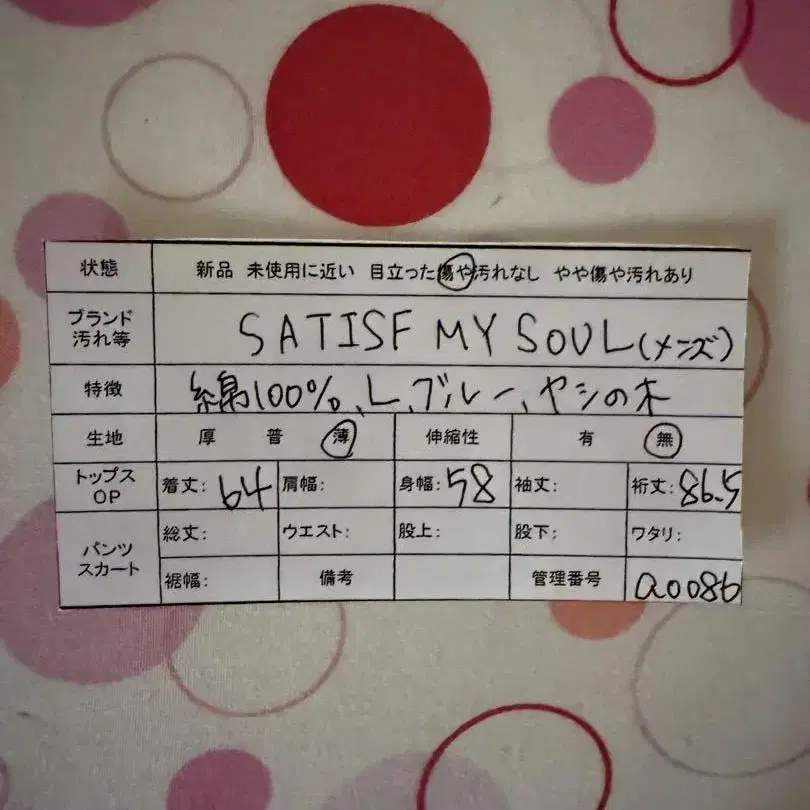 状態 新品 未使用に近い 目立った傷や汚れなし やや傷や汚れあり
ブランド
汚れ等
SATISF MY SOUL(メンズ)
特徴 綿100%、L、ブルー、ヤシの木
生地 厚 普 薄 伸縮性 有 無
トップス
OP
着丈: 64 肩幅: 身幅: 58 袖丈: 裄丈: 86.5
パンツ
スカート
総丈: ウエスト: 股上: 股下: ワタリ:
裾幅: 備考 管理番号 a0086